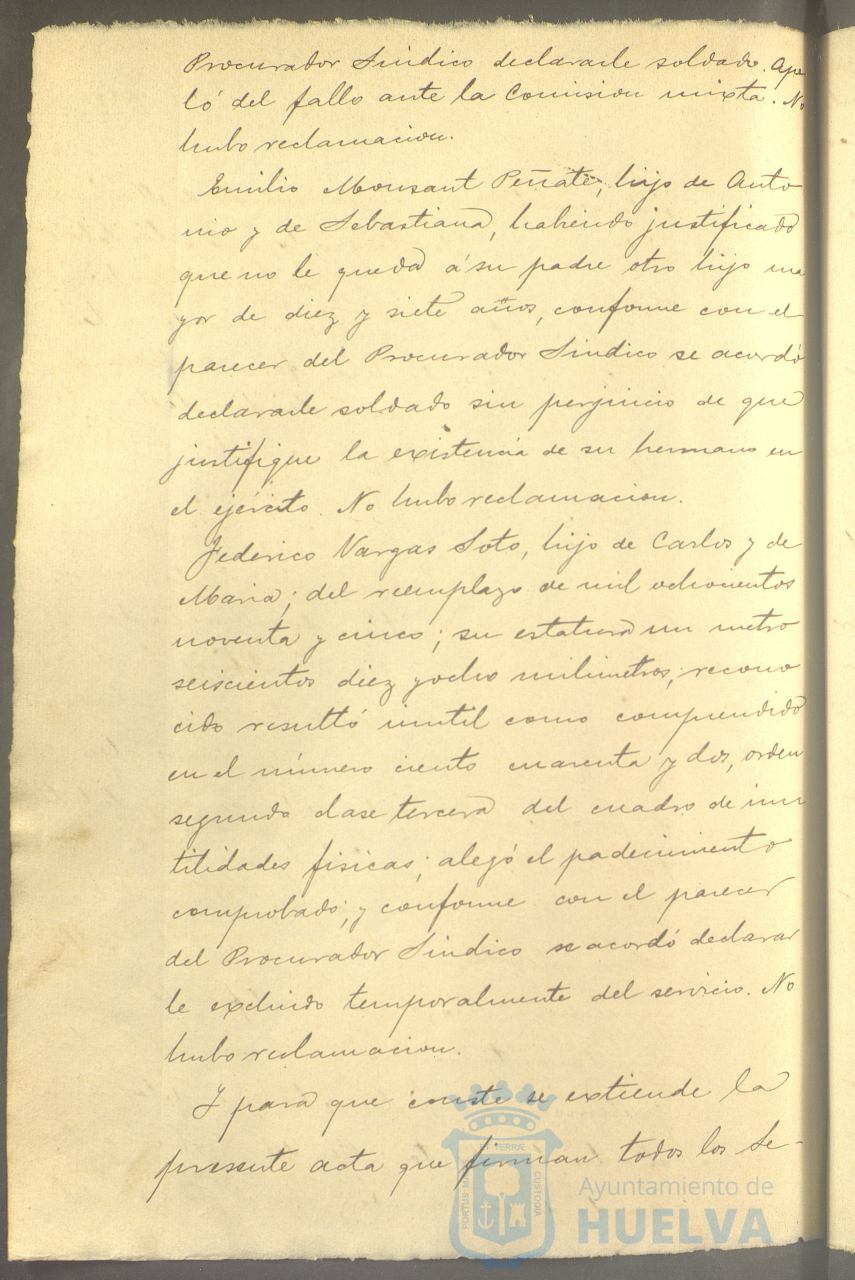 Procurador Sindico declararle soldado. Ape
ló del fallo ante la Comision mixta. No
hubo reclamacion.
Emilio Monsant Peñate, hijo de Anto
nio y de Sebastiana, habiendo justificado
que no le queda á su padre otro hijo ma
yor de diez y siete años, conforme con el
parecer del Procurador Sindico se acordó
declararle soldado sin perjuicio de que
justifique la existencia de su hermano en
el ejército. No hubo reclamacion.
Federico Vargas Soto, hijo de Carlos y de
Maria; del reemplazo de mil ochocientos
noventa y cinco; su estatura un metro
seiscientos diez y ocho milimetros; recono
cido resultó inutil como comprendido
en el número ciento cuarenta y dos, orden
segundo clase tercera del cuadro de inu
tilidades fisicas; alegó el padecimiento
comprobado; y conforme con el parecer
del Procurador Sindico se acordó declarar
le excluido temporalmente del servicio. No
hubo reclamacion.
Y para que conste se extiende la
presente acta que firman todos los Se-
TERRÆ
CUSTODIA
Ayuntamiento de
HUELVA